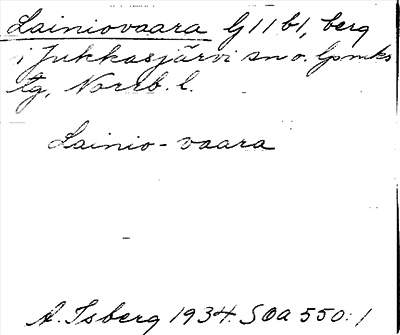 Lainiovaara G11b1, berg
i Jukkasjärvi sn o. lpmks
tg, Norrb. l.
Lainio-vaara
A. Isberg 1934. SOA 550:1